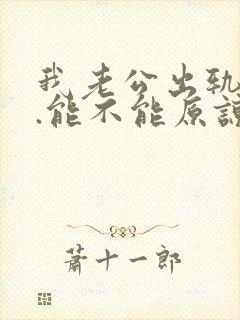 我老公出轨
.能不能原谅
萧十一郎